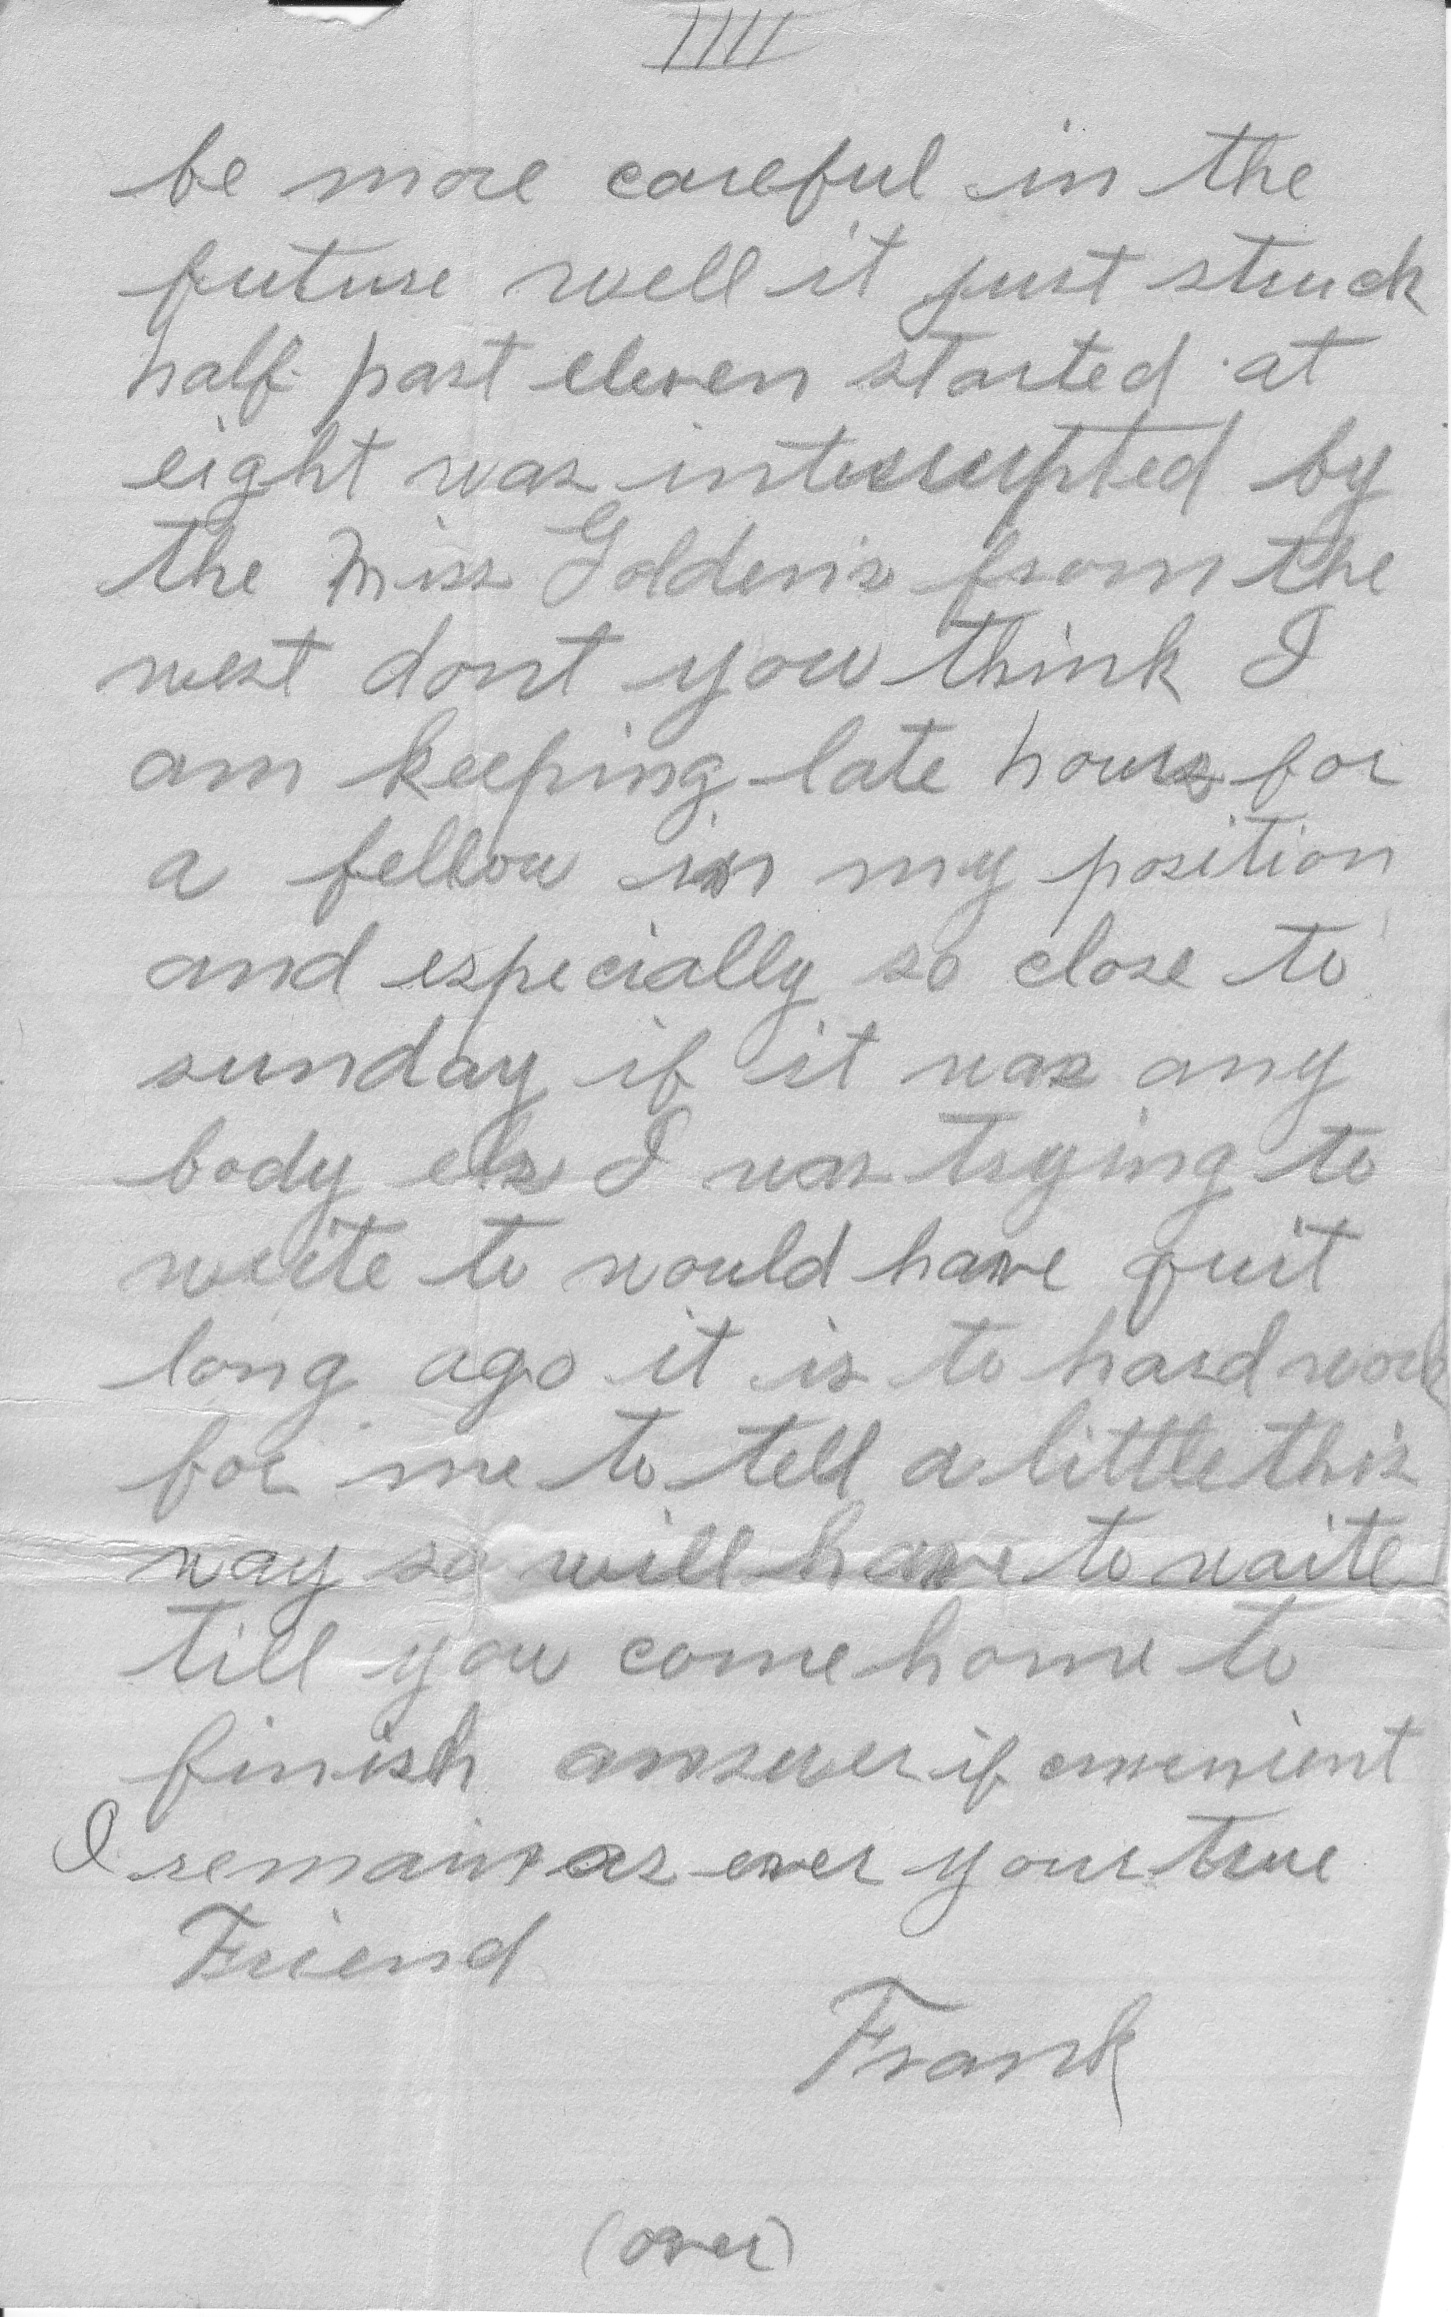 IIII
be more careful in the
future well it just struck
half past eleven started at
eight was interrupted by
the Miss Golden's from the
west dont you think I
am keeping late hours for
a fellow in my position
and especially so close to
sunday if it was any
body els I was trying to
write to would have quit
long ago it is to hard work
for me to tell a little this
way so will have to waite
till you come home to
finish answer if convenient
I remain as ever your true
Friend
Frank
(over)